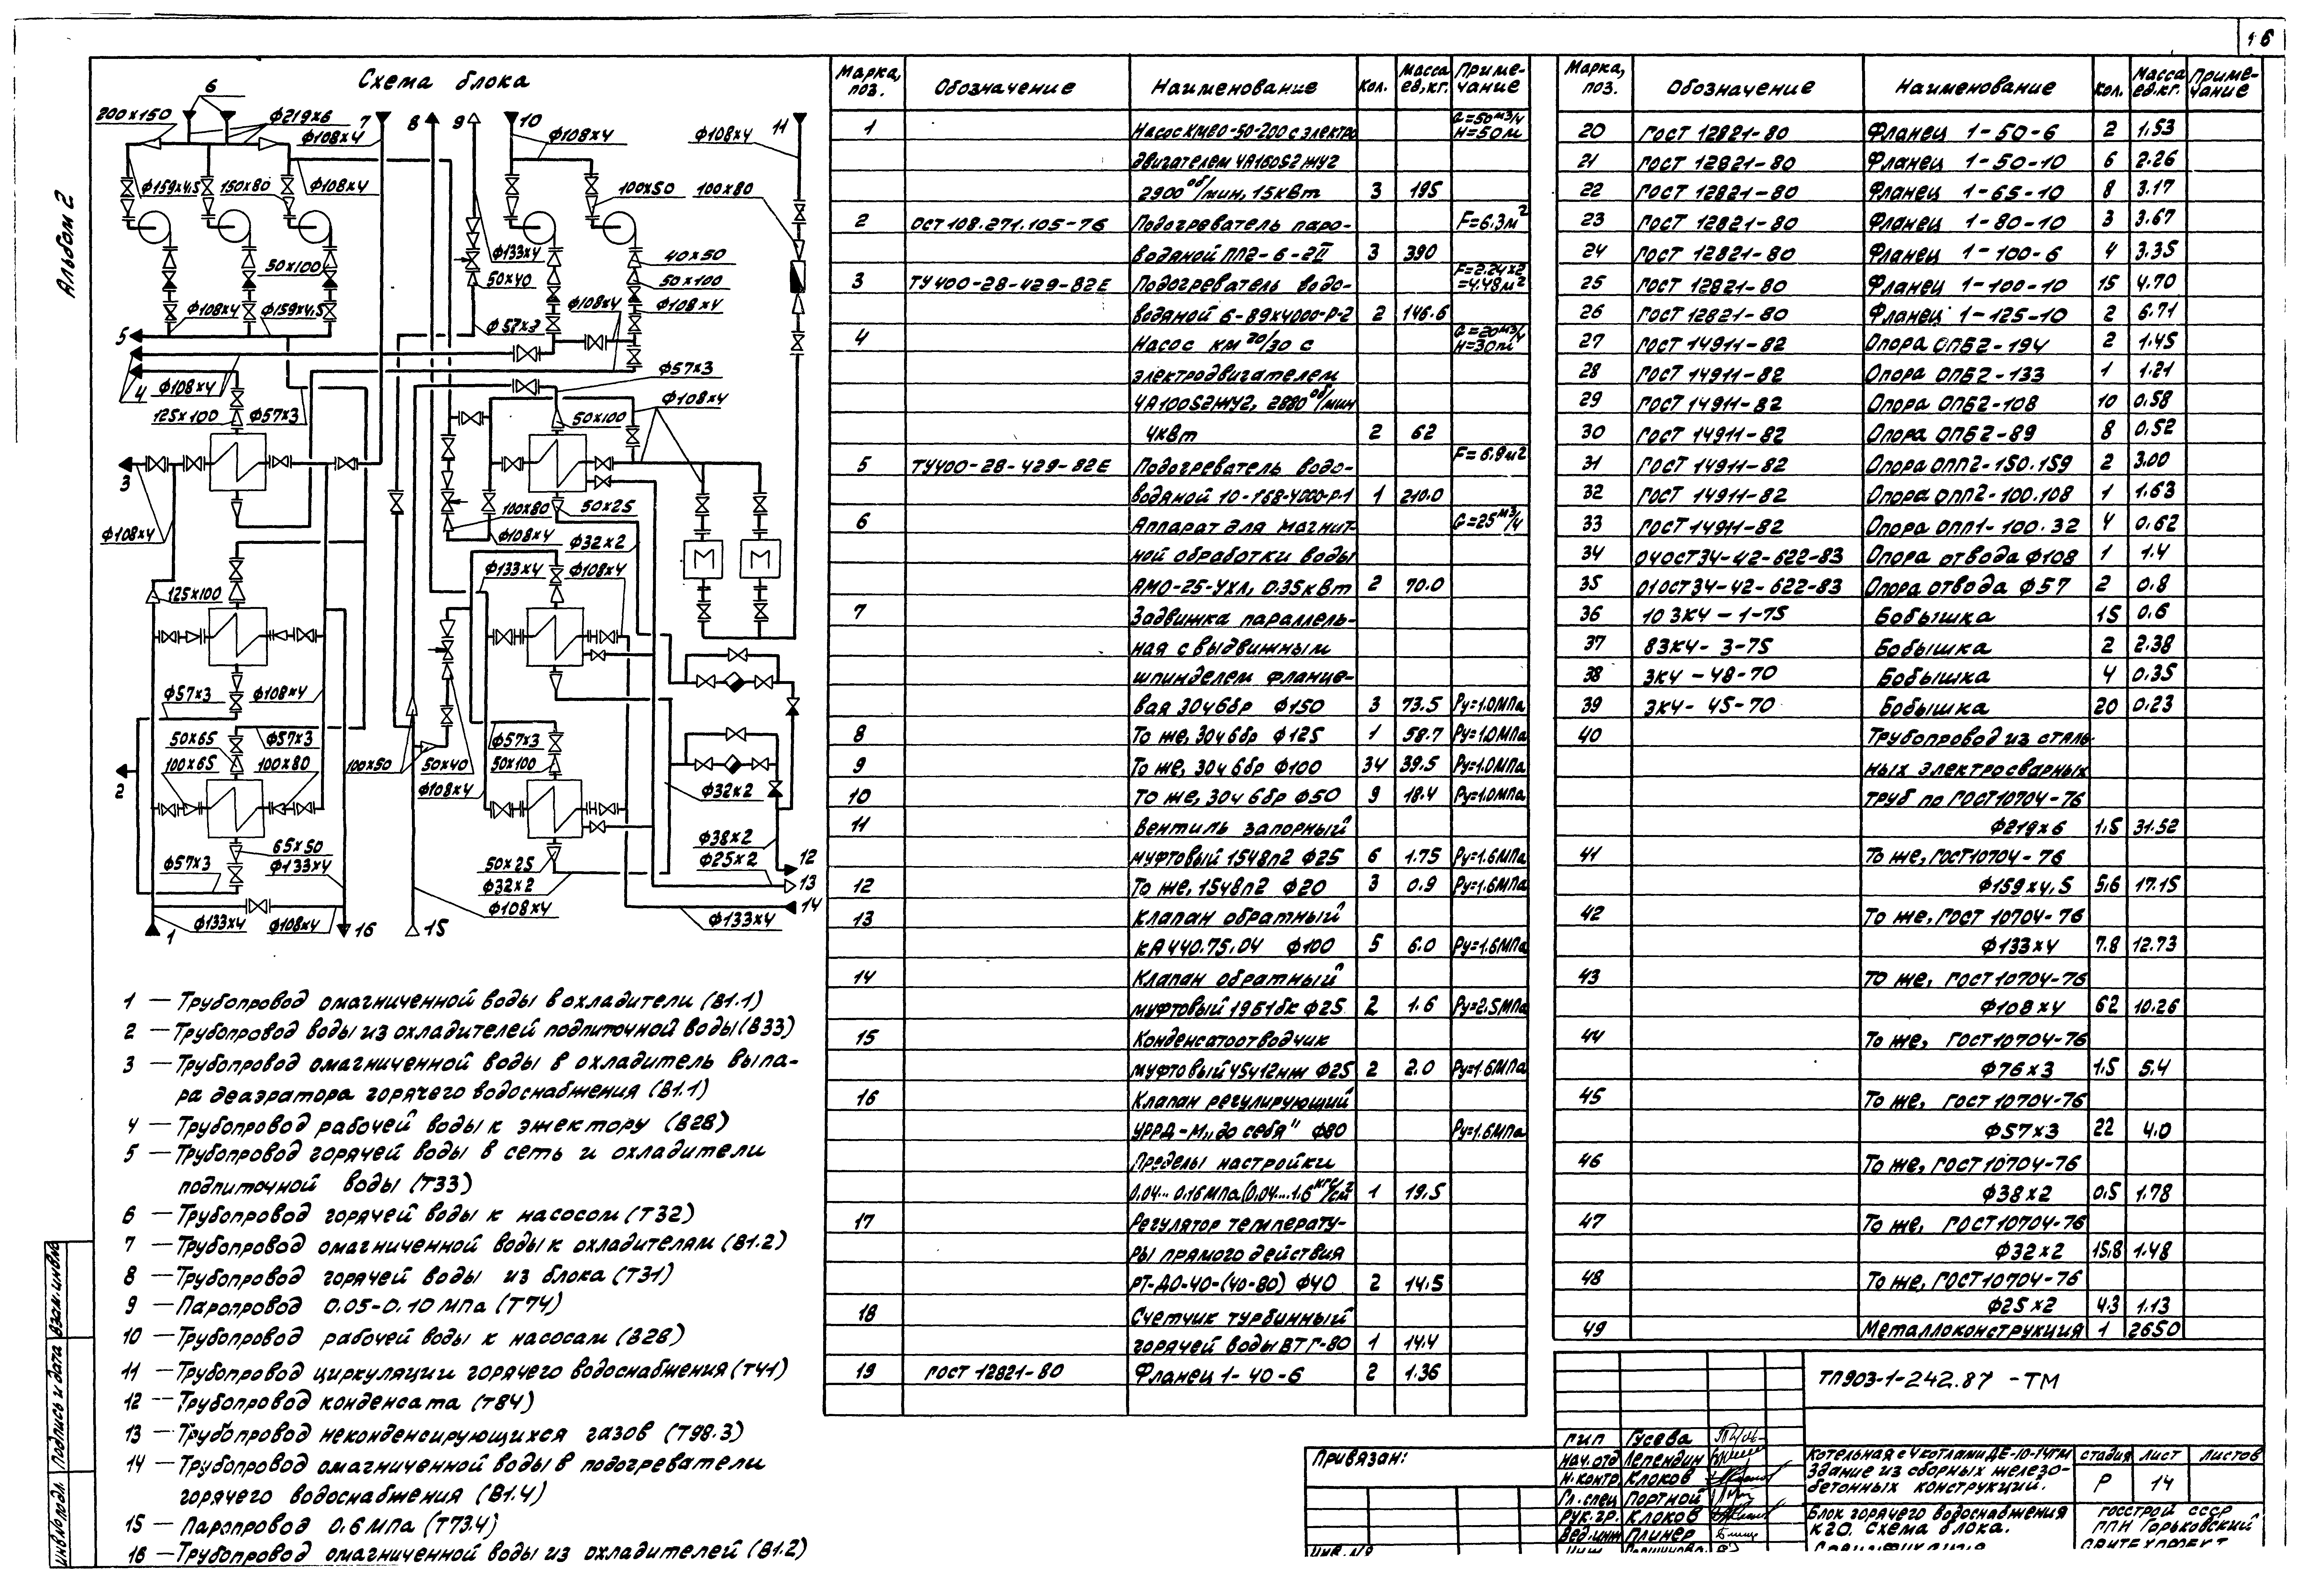 16
Альбом 2
Схема блока
6
200×150
ф219×6
ф108×4
7
8
9
10
ф108×4
ф108×4
11
ф159×4,5
150×80
ф108×4
100×50
100×80
50×100
ф133×4
50×40
40×50
50×100
ф108×4
ф108×4
ф108×4
ф159×4,5
ф57×3
5
4
ф108×4
ф57×3
ф108×4
125×100
ф57×3
50×100
3
100×80
50×25
ф108×4
ф108×4
ф32×2
М
М
ф133×4
ф108×4
125×100
ф57×3
ф108×4
50×65
ф57×3
ф57×3
100×65
100×80
100×50
50×40
50×100
2
ф108×4
ф32×2
65×50
ф38×2
ф57×3
ф133×4
50×25
ф25×2
12
ф32×2
13
ф108×4
14
ф133×4
ф108×4
ф133×4
1
16
15
1 — Трубопровод омагниченной воды в охладители (В1.1)
2 — Трубопровод воды из охладителей подпиточной воды (В33)
3 — Трубопровод омагниченной воды в охладитель выпа-
ра деаэратора горячего водоснабжения (В1.1)
4 — Трубопровод рабочей воды к эжектору (В28)
5 — Трубопровод горячей воды в сеть и охладители
подпиточной воды (Т33)
6 — Трубопровод горячей воды к насосом (Т32)
7 — Трубопровод омагниченной воды к охладителям (В1.2)
8 — Трубопровод горячей воды из блока (Т31)
9 — Паропровод 0.05-0.10 МПа (Т74)
10 — Трубопровод рабочей воды к насосам (В28)
11 — Трубопровод циркуляции горячего водоснабжения (Т41)
12 — Трубопровод конденсата (Т84)
13 — Трубопровод неконденсирующихся газов (Т98.3)
14 — Трубопровод омагниченной воды в подогреватели
горячего водоснабжения (В1.4)
15 — Паропровод 0.6 МПа (Т73.4)
16 — Трубопровод омагниченной воды из охладителей (В1.2)
Марка, поз. Обозначение Наименование Кол. Масса ед, кг. Приме-чание
1 Насос КМ80-50-200 с электро G=50м³/ч H=50м
двигателем 4А160S2ЖУ2
2900 об/мин, 15кВт 3 195
2 ОСТ 108.271.105-76 Подогреватель паро- F=6.3м²
водяной ПП2-6-2II 3 390
3 ТУ400-28-429-82Е Подогреватель водо- F=2.24×2 =4.48м²
водяной 6-89×4000-Р-2 2 146.6
4 Насос КМ 20/30 с G=20м³/ч H=30м
электродвигателем
4А100S2ЖУ2, 2880 об/мин
4кВт 2 62
5 ТУ400-28-429-82Е Подогреватель водо- F=6.9м²
водяной 10-168-4000-Р-1 1 210.0
6 Аппарат для магнит- G=25м³/ч
ной обработки воды
АМО-25-УХЛ, 0.35кВт 2 70.0
7 Задвижка параллель-
ная с выдвижным
шпинделем фланце-
вая 30ч6бр ф150 3 73.5 Ру=1.0МПа
8 То же, 30ч6бр ф125 1 58.7 Ру=1.0МПа
9 То же, 30ч6бр ф100 34 39.5 Ру=1.0МПа
10 То же, 30ч6бр ф50 9 18.4 Ру=1.0МПа
11 Вентиль запорный
муфтовый 15ч8п2 ф25 6 1.75 Ру=1.6МПа
12 То же, 15ч8п2 ф20 3 0.9 Ру=1.6МПа
13 Клапан обратный
КА440.75.04 ф100 5 6.0 Ру=1.6МПа
14 Клапан обратный
муфтовый 19Б1бк ф25 2 1.6 Ру=2.5МПа
15 Конденсатоотводчик
муфтовый 45ч12нж ф25 2 2.0 Ру=1.6МПа
16 Клапан регулирующий
УРРД-М „до себя" ф80 Ру=1.6МПа
Пределы настройки
0.04... 0.16МПа (0.04...1.6 кгс/см²) 1 19.5
17 Регулятор температу-
ры прямого действия
РТ-ДО-40-(40-80) ф40 2 14.5
18 Счетчик турбинный
горячей воды ВТГ-80 1 14.4
19 ГОСТ 12821-80 Фланец 1-40-6 2 1.36
Марка, поз. Обозначение Наименование Кол. Масса ед, кг. Приме-чание
20 ГОСТ 12821-80 Фланец 1-50-6 2 1.53
21 ГОСТ 12821-80 Фланец 1-50-10 6 2.26
22 ГОСТ 12821-80 Фланец 1-65-10 8 3.17
23 ГОСТ 12821-80 Фланец 1-80-10 3 3.67
24 ГОСТ 12821-80 Фланец 1-100-6 4 3.35
25 ГОСТ 12821-80 Фланец 1-100-10 15 4.70
26 ГОСТ 12821-80 Фланец 1-125-10 2 6.71
27 ГОСТ 14911-82 Опора ОПБ2-194 2 1.45
28 ГОСТ 14911-82 Опора ОПБ2-133 1 1.21
29 ГОСТ 14911-82 Опора ОПБ2-108 10 0.58
30 ГОСТ 14911-82 Опора ОПБ2-89 8 0.52
31 ГОСТ 14911-82 Опора ОПП2-150.159 2 3.00
32 ГОСТ 14911-82 Опора ОПП2-100.108 1 1.63
33 ГОСТ 14911-82 Опора ОПП1-100.32 4 0.62
34 04ОСТ34-42-622-83 Опора отвода ф108 1 1.4
35 01ОСТ34-42-622-83 Опора отвода ф57 2 0.8
36 10ЗК4-1-75 Бобышка 15 0.6
37 8ЗК4-3-75 Бобышка 2 2.38
38 ЗК4-48-70 Бобышка 4 0.35
39 ЗК4-45-70 Бобышка 20 0.23
40 Трубопровод из сталь-
ных электросварных
труб по ГОСТ10704-76
ф219×6 1.5 31.52
41 То же, ГОСТ10704-76
ф159×4,5 5,6 17.15
42 То же, ГОСТ 10704-76
ф133×4 7.8 12.73
43 То же, ГОСТ10704-76
ф108×4 62 10.26
44 То же, ГОСТ10704-76
ф76×3 1,5 5.4
45 То же, ГОСТ10704-76
ф57×3 22 4.0
46 То же, ГОСТ10704-76
ф38×2 0,5 1.78
47 То же, ГОСТ10704-76
ф32×2 15,8 1.48
48 То же, ГОСТ10704-76
ф25×2 4.3 1.13
49 Металлоконструкция 1 2650
ТП903-1-242.87 -ТМ
Привязан:
ГИП Гусева
Нач.отд Лепендин
Н.контр. Клоков
Гл.спец Портной
Рук.гр. Клоков
Вед.инж Плинер
Котельная с 4 котлами ДЕ-10-14ГМ
Здание из сборных железо-
бетонных конструкций.
стадия лист листов
Р 14
Блок горячего водоснабжения
К20. Схема блока.
Госстрой СССР
ГПИ Горьковский
Сантехпроект
Взам.инв№
Подпись и дата
Инв№подл.